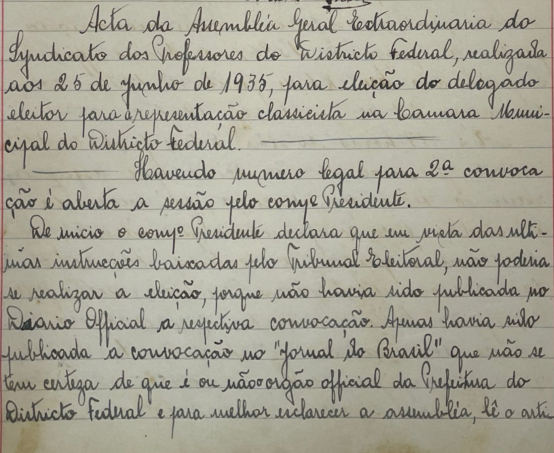 Acta da Assembléa Geral Extraordinaria do
Syndicato dos Professores do Districto Federal, realizada
aos 25 de Junho de 1935, para eleição do delegado
eleitor para a representação classicista na Camara Muni-
cipal do Districto Federal.
Havendo numero legal para 2ª convoca
ção é aberta a sessão pelo compº Presidente.
De inicio o compº Presidente declara que em vista das ulti-
mas instrucções baixadas pelo Tribunal Eleitoral, não poderia
se realizar a eleição, porque não havia sido publicada no
Diario Official a respectiva convocação. Apenas havia sido
publicada a convocação no "Jornal do Brasil" que não se
tem certeza de que é ou não o orgão official da Prefeitura do
Districto Federal e para melhor esclarecer a assembléa, lê o arti